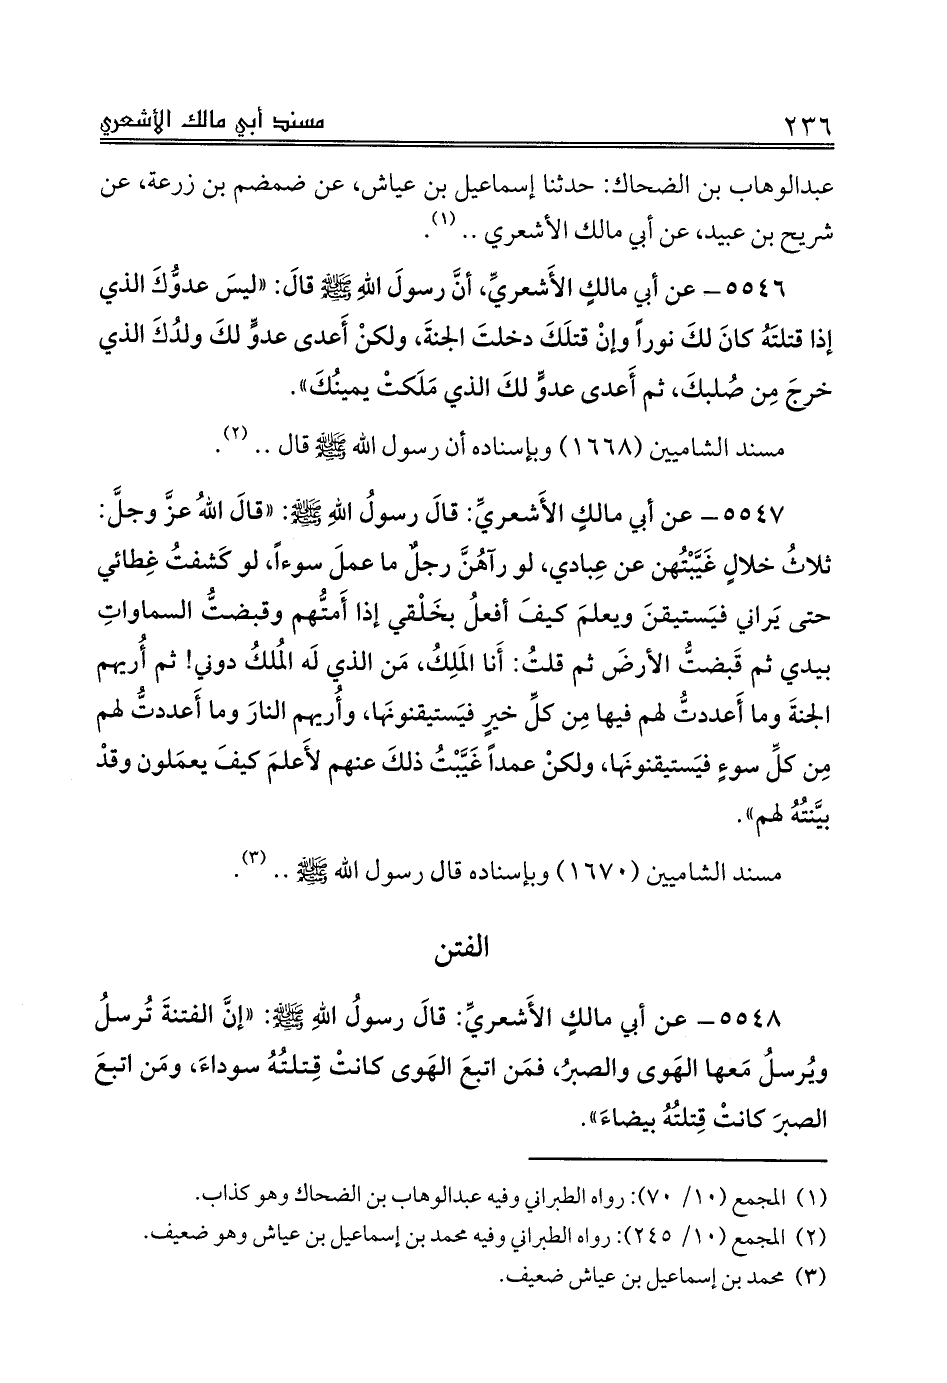 ٢٣٦ مسند أبي مالك الأشعري
عبدالوهاب بن الضحاك: حدثنا إسماعيل بن عياش، عن ضمضم بن زرعة، عن
شريح بن عبيد، عن أبي مالك الأشعري .. (١).
٥٥٤٦ ـ عن أبي مالكٍ الأَشعريِّ، أنَّ رسولَ اللهِ ﷺ قالَ: «ليسَ عدوُّكَ الذي
إذا قتلتَهُ كانَ لكَ نوراً وإنْ قتلَكَ دخلتَ الجنةَ، ولكنْ أَعدى عدوٍّ لكَ ولدُكَ الذي
خرجَ مِن صُلبكَ، ثم أَعدى عدوٍّ لكَ الذي مَلَكتْ يمينُكَ».
مسند الشاميين (١٦٦٨) وبإسناده أن رسول الله ﷺ قال .. (٢).
٥٥٤٧ ـ عن أبي مالكٍ الأَشعريِّ: قالَ رسولُ اللهِ ﷺ: «قالَ اللهُ عزَّ وجلَّ:
ثلاثُ خلالٍ غَيَّبْتُهن عن عِبادي، لو رآهُنَّ رجلٌ ما عملَ سوءاً، لو كَشفتُ غِطائي
حتى يَراني فيَستيقنَ ويعلمَ كيفَ أفعلُ بخَلْقي إذا أَمتُّهم وقبضتُّ السماواتِ
بيدي ثم قَبضتُّ الأرضَ ثم قلتُ: أنا الَملِكُ، مَن الذي لَه الُملكُ دوني! ثم أُريهم
الجنةَ وما أَعددتُّ لهم فيها مِن كلِّ خيرٍ فيَستيقنونَها، وأُريهم النارَ وما أَعددتُّ لهم
مِن كلِّ سوءٍ فيَستيقنونَها، ولكنْ عمداً غَيَّبْتُ ذلكَ عنهم لأَعلمَ كيفَ يعمَلون وقدْ
بيَّنتُهُ لهم».
مسند الشاميين (١٦٧٠) وبإسناده قال رسول الله ﷺ .. (٣).
الفتن
٥٥٤٨ ـ عن أبي مالكٍ الأَشعريِّ: قالَ رسولُ اللهِ ﷺ: «إنَّ الفتنةَ تُرسلُ
ويُرسلُ مَعها الهَوى والصبرُ، فمَن اتبعَ الهَوى كانتْ قِتلتُهُ سوداءَ، ومَن اتبعَ
الصبرَ كانتْ قِتلتُهُ بيضاءَ».
(١) المجمع (١٠/ ٧٠): رواه الطبراني وفيه عبدالوهاب بن الضحاك وهو كذاب.
(٢) المجمع (١٠/ ٢٤٥): رواه الطبراني وفيه محمد بن إسماعيل بن عياش وهو ضعيف.
(٣) محمد بن إسماعيل بن عياش ضعيف.